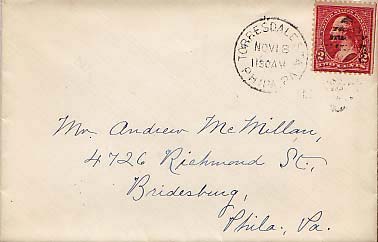 TORRESDALE STA.
NOV 18
1150AM
PHILA. PA.
2 2
TWO CENTS
Mr. Andrew McMillan,
4726 Richmond St.,
Bridesburg,
Phila., Pa.